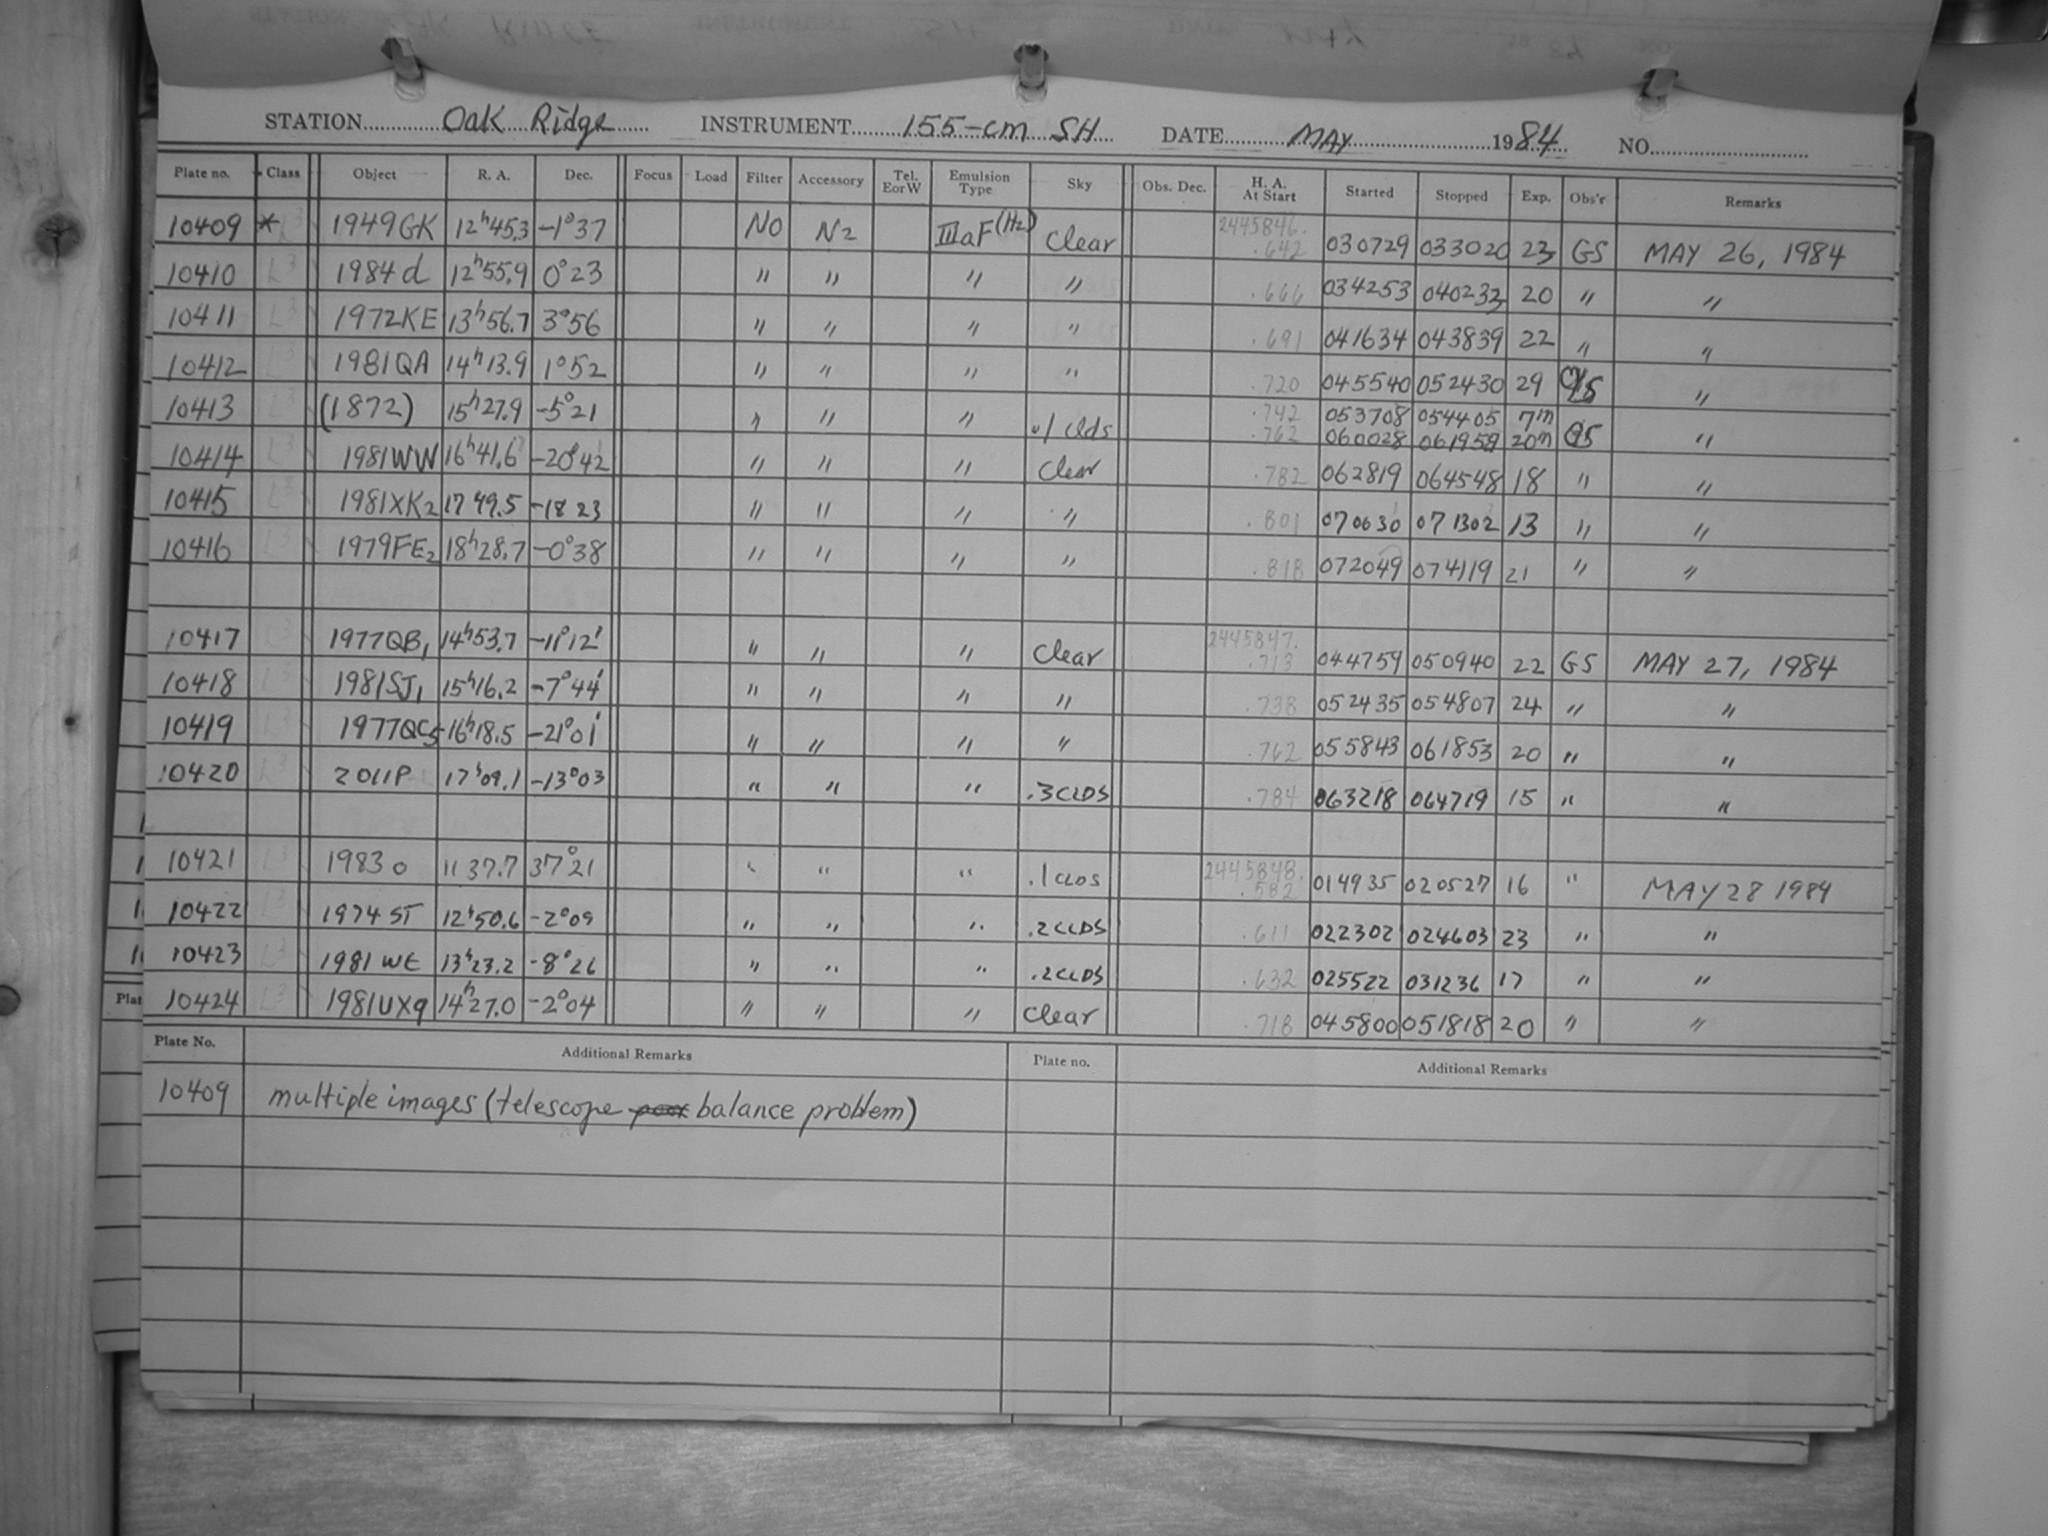 STATION Oak Ridge INSTRUMENT 155-cm SH DATE MAY 1984 NO.
Plate no. Class Object R. A. Dec. Focus Load Filter Accessory Tel. E or W Emulsion Type Sky Obs. Dec. H. A. At Start Started Stopped Exp. Obs'r Remarks
10409 * L3 1949GK 12h45.3 -1°37 NO N2 IIIaF(H2) Clear 2445846. .642 030729 033020 23 GS MAY 26, 1984
10410 L3 1984d 12h55.9 0°23 " " " " .666 034253 040232 20 " "
10411 L3 1972KE 13h56.7 3°56 " " " " .691 041634 043839 22 " "
10412 L3 1981QA 14h13.9 1°52 " " " " .720 045540 052430 29 "
10413 L3 (1872) 15h27.9 -5°21 " " " .1 clds .742 053708 054405 7m
.762 060028 061959 20m GS "
10414 L3 1981WW 16h41.6 -20°42 " " " Clear .782 062819 064548 18 " "
10415 L3 1981XK2 17 49.5 -18 23 " " " " .801 070030 071302 13 " "
10416 L3 1979FE2 18h28.7 -0°38 " " " " .818 072049 074119 21 " "
10417 L3 1977QB1 14h53.7 -11°12' " " " Clear 2445847. .713 044759 050940 22 GS MAY 27, 1984
10418 L3 1981SJ1 15h16.2 -7°44' " " " " .738 052435 054807 24 " "
10419 L3 1977QC5 16h18.5 -21°01' " " " " .762 055843 061853 20 " "
10420 L3 2011P 17h09.1 -13°03 " " " .3CLDS .784 063218 064719 15 " "
10421 L3 1983 o 11 37.7 37°21 " " " .1CLDS 2445848. .582 014935 020527 16 " MAY 28 1984
10422 L3 1974 ST 12h50.6 -2°09 " " " .2CLDS .611 022302 024603 23 " "
10423 L3 1981 WE 13h23.2 -8°26 " " " .2CLDS .632 025522 031236 17 " "
10424 L3 1981UX9 14h27.0 -2°04 " " " Clear .718 045800 051818 20 " "
Plate No. Additional Remarks Plate no. Additional Remarks
10409 multiple images (telescope balance problem)
Plat